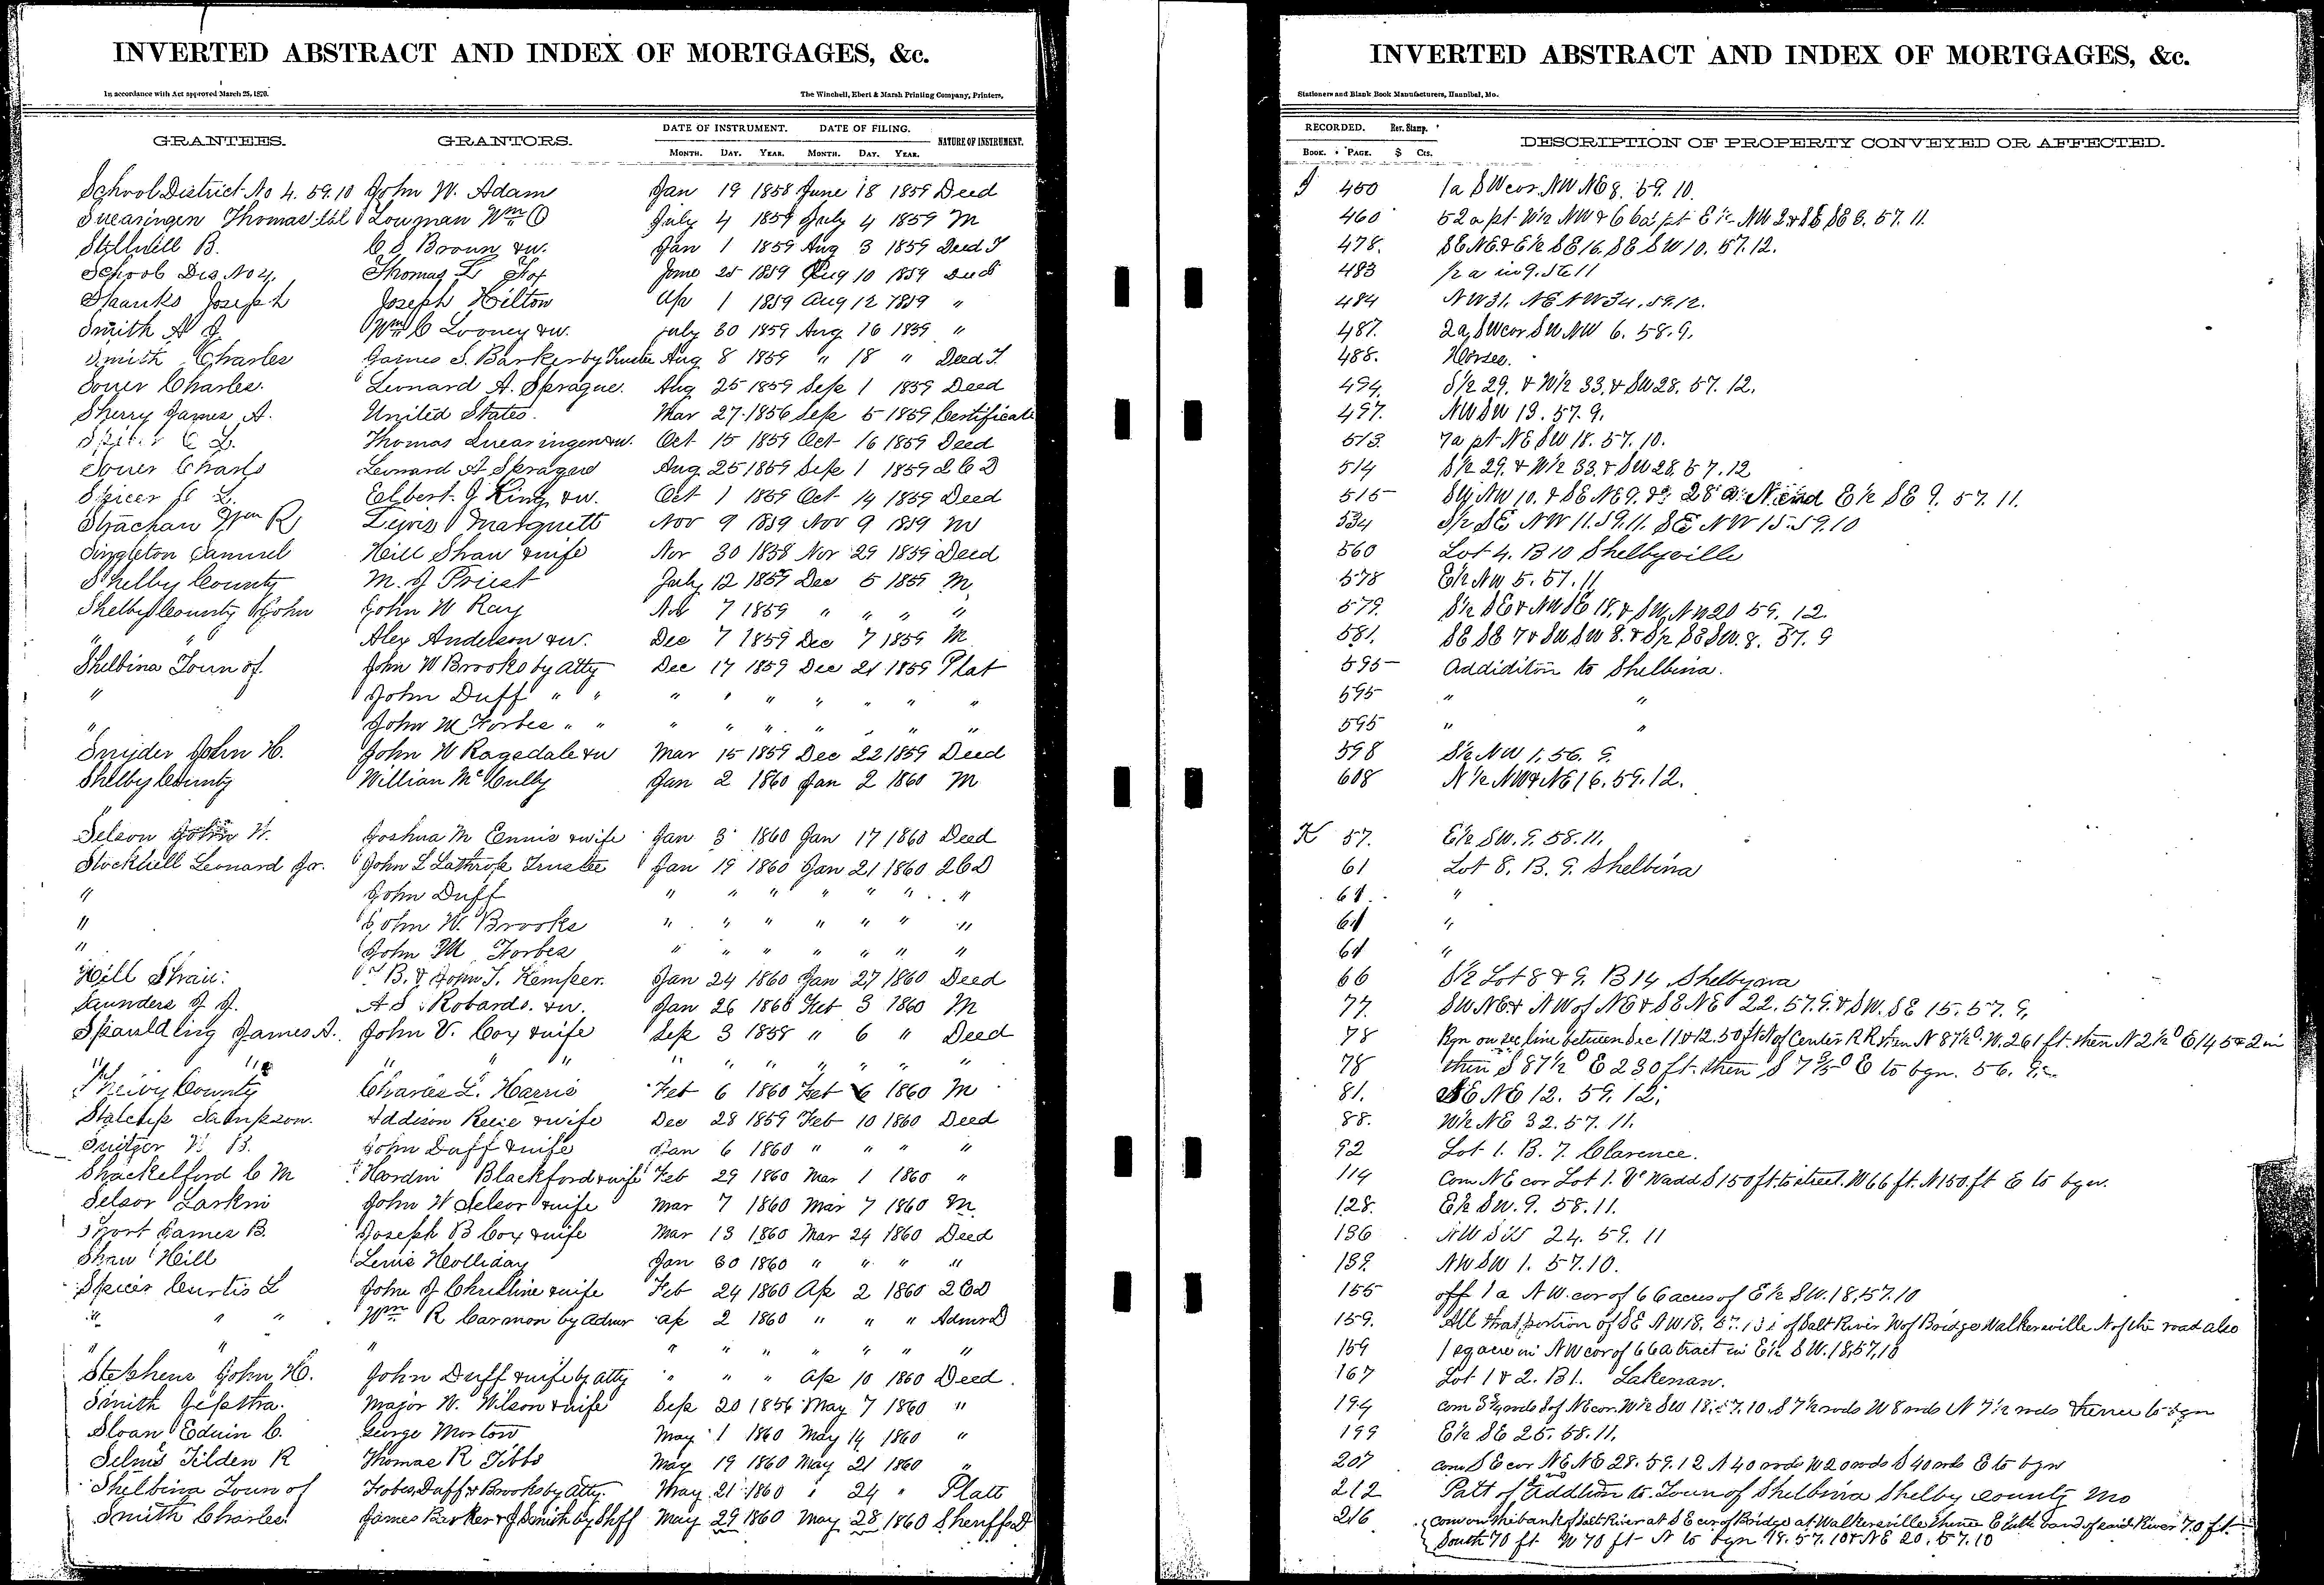 INVERTED ABSTRACT AND INDEX OF MORTGAGES, &c.
In accordance with Act approved March 25, 1870. The Winchell, Ebert & Marsh Printing Company, Printers,
DATE OF INSTRUMENT. DATE OF FILING.
GRANTEES. GRANTORS. NATURE OF INSTRUMENT.
MONTH. DAY. YEAR. MONTH. DAY. YEAR.
School District No 4. 59.10 John W. Adam Jan 19 1858 June 18 1859 Deed
Thomas Wm July 4 1859 July 4 1859 M
Stillwell B. C S Brown &w. Jan 1 1859 Aug 3 1859 Deed T
School Dis. No 4, Thomas L Fox June 25 1859 Aug 10 1859 Deed
Shanks Joseph Joseph Hilton Ap 1 1859 Aug 12 1859 "
Smith A Wm C Looney &w. July 30 1859 Aug 16 1859 "
Smith Charles Gaines S. Barker by Trustee Aug 8 1859 " 18 " Deed T.
Sower Charles. Leonard A. Sprague. Aug 25 1859 Sept 1 1859 Deed
Sherry James A. United States. Mar 27 1856 Sep 5 1859 Certificate
Spicer C L. Thomas &w. Oct 15 1859 Oct 16 1859 Deed
Sower Charls Leonard A Aug 25 1859 Sept 1 1859 2 C D
Spicer C L. Elbert G King &w. Oct 1 1859 Oct 14 1859 Deed
Strachan Wm R Lewis Marquett Nov 9 1859 Nov 9 1859 M
Singleton Samuel Hill Shaw &wife Nov 30 1858 Nov 29 1859 Deed
Shelby County M. J Priest July 12 1859 Dec 5 1859 M
Shelby County John John W Ray 7 1859 " " " "
" Alex Anderson &w. Dec 7 1859 Dec 7 1859 M
Shelbina Town of. John W Brooks by Atty Dec 17 1859 Dec 21 1859 Plat
" John Duff " " " " " " " " "
" John M Forbes " " " " " " " " "
Snyder John H. John W Ragsdale &w Mar 15 1859 Dec 22 1859 Deed
Shelby County William McCully Jan 2 1860 Jan 2 1860 M
John W. Joshua M Ennis &wife Jan 3 1860 Jan 17 1860 Deed
Leonard Jr. John L Lathrop Trustee Jan 19 1860 Jan 21 1860 2 C D
" John Duff " " " " " " "
" John W. Brooks " " " " " " "
" John M Forbes " " " " " " "
Hill Shaw. B. & John T. Kemper. Jan 24 1860 Jan 27 1860 Deed
Saunders J J. A S. Robards. &w. Jan 26 1860 Feb 3 1860 M
Spauldling James A. John V. Cox &wife Sep 3 1858 " 6 " Deed
" " " " " " " " " " "
County Charles L. Harris Feb 6 1860 Feb 6 1860 M
Stalcup Sampson. Addison &wife Dec 28 1859 Feb 10 1860 Deed
John Duff &wife Jan 6 1860 " " " "
Shackelford C M Hardin Blackford &wife Feb 29 1860 Mar 1 1860 "
Selsor Larkin John W Selsor &wife Mar 7 1860 Mar 7 1860 M
Short James B. Joseph B Cox &wife Mar 13 1860 Mar 24 1860 Deed
Shaw Hill Lewis Holliday Jan 30 1860 " " " "
Spicer Curtis L John J Christine &wife Feb 24 1860 Ap 2 1860 2 C D
" " " Wm R Carmon by Admr Ap 2 1860 " " " Admr D
" " " " " " " " " "
Stephens John H. John Duff &wife by atty " " " Ap 10 1860 Deed.
Smith Major W. Wilson &wife Sep 20 1856 May 7 1860 "
Sloan Edwin C. George Morton May 1 1860 May 14 1860 "
Tilden R Thomas R Tibbs May 19 1860 May 21 1860 "
Shelbina Town of Duff & Brooks by Atty. May 21 1860 " 24 " Platt
Smith Charles James Barker & J Smith by Shff May 29 1860 May 28 1860 Sheriff D
INVERTED ABSTRACT AND INDEX OF MORTGAGES, &c.
Stationers and Blank Book Manufacturers, Hannibal, Mo.
RECORDED. Rev. Stamp.
DESCRIPTION OF PROPERTY CONVEYED OR AFFECTED.
BOOK. PAGE. $ Cts.
J 450 1a SW cor. NW NE 8. 59. 10.
460 52 a pt W½ NW & 66a pt E½ NW 2 & SE SE 8. 57. 11.
478. SE NE & E½ SE 16, SE SW 10. 57. 12.
483 ½ a in
484 NW 31. NE NW 34. 59. 12.
487. 2a, SW cor SW NW 6. 58. 9.
488. Horses.
494. S½ 29. & W½ 33. & SW 28. 57. 12.
497. NW SW 13. 57. 9.
513. 7a pt NE SW 18. 57. 10.
514 S½ 29. & W½ 33. & SW 28. 57. 12
515 NW 10. & SE NE 9. & 28 a N. end E½ SE 9. 57. 11.
534 S½ SE NW 11. 59. 11. SE NW 15. 59. 10
560 Lot 4. B 10 Shelbyville
578 E½ NW 5. 57. 11
579. S½ SE & NW SE 18. & SW NW 20 59. 12.
581. SE SE 7 & SW SW 8. & S½ SE SW. 8. 57. 9
595 Addidition to Shelbina.
595 " "
595 " "
598 S½ NW 1, 56. 9.
608 N½ NW & NE 16. 59. 12.
K 57. E½ SW. 9. 58. 11.
61 Lot 8. B. 9. Shelbina
61 "
61 "
61 "
66 S½ Lot 8 & 9. B 14
77. SW NE & NW of NE & SE NE 22. 57. 9. & SW. SE 15. 57. 9.
78 Bgn on sec line between Sec 11 & 12. 50 ft N of Center R R then N 87½° W. 261 ft. then N 2½° E 145 & 2 in
78 then S 87½° E 230 ft. then S 7 E to bgn. 56. 9.
81. NE 12. 59. 12.
88. W½ NE 32. 57. 11.
92 Lot 1. B. 7. Clarence.
114 Com NE cor Lot 1. S 150 ft. to street. W 66 ft. N 150. ft E to bgn.
128. E½ SW. 9. 58. 11.
136 NW SW 24. 59. 11
139. NW SW 1. 57. 10.
155 off 1 a N W. cor of 66 acres of E½ SW. 18, 57. 10
159. All that portion of SE NW 18. of Salt River W of Bridge Walkersville N of the road also
159 1 sq acre in NW cor of 66 a tract in E½ SW. 18, 57, 10
167 Lot 1 & 2. B 1. Lakenan.
194 com rods S of NE cor. W½ SW 18. 57. 10. S 7½ rods W 8 rods N 7½ rods thence to bgn
199 E½ SE 25. 58. 11.
207 com SE cor NE NE 28. 59. 12 N 40 rods W 20 rods S 40 rods E to bgn
212 Patt of 2nd Addtion to Town of Shelbina Shelby County Mo
216 Com on the bank of Salt River at S E cor of Bridge at Walkersville thence E with band of said River 70 ft.
South 70 ft W 70 ft N to bgn 18. 57. 10 & NE 20. 57. 10